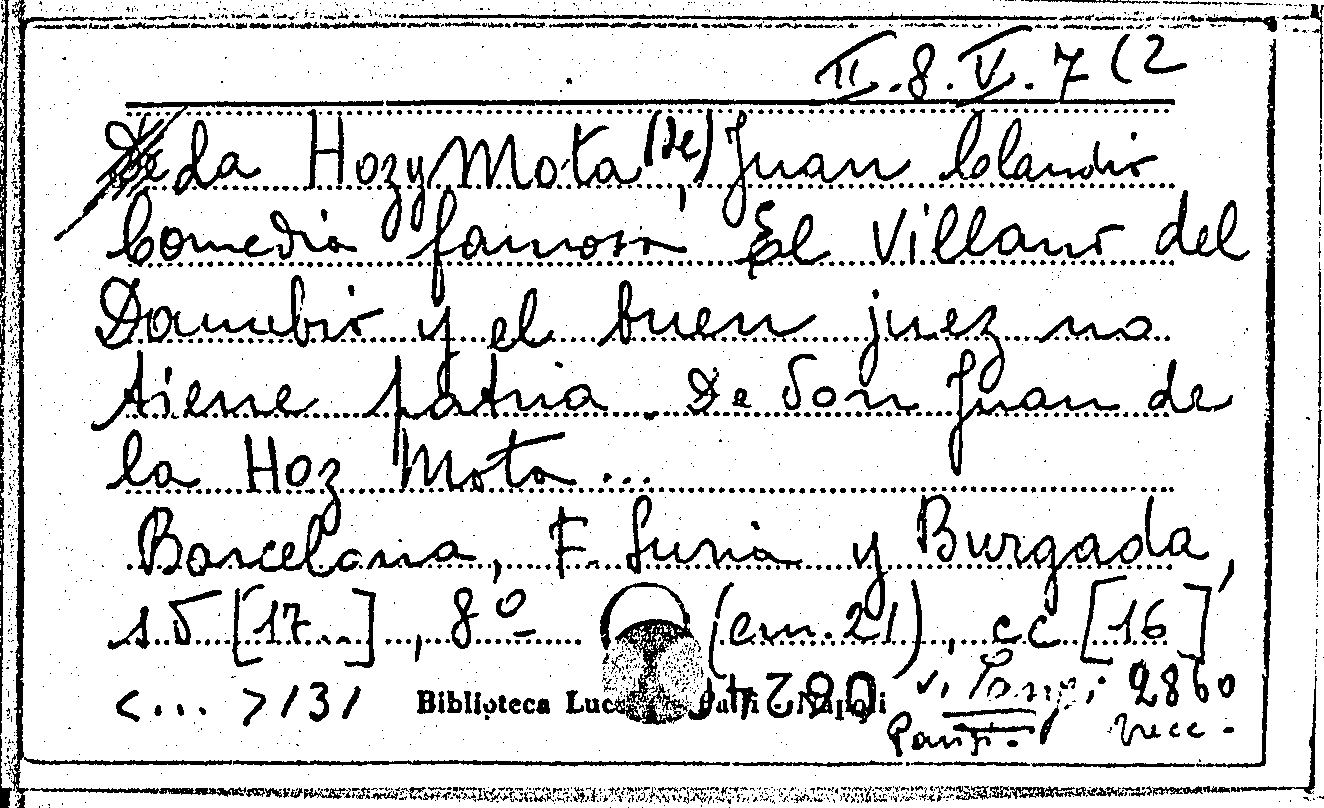 II.8.V.7(2
La Hoz y Mota (de), Juan Claudio
Comedia famosa El Villano del
Danubio y el buen juez no
tiene patria. De Don Juan de
la Hoz Mota...
Barcelona, F. Suria y Burgada,
s d [17..], 8º (cm. 21), cc [16]
<...>/3/ Biblioteca Luc Napoli v. 2860